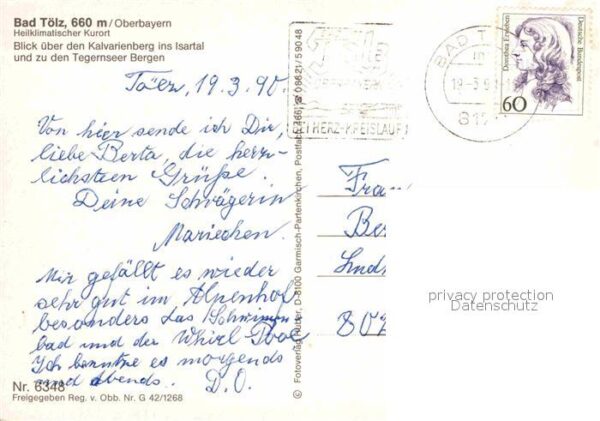 Bad Tölz, 660 m/Oberbayern
Heilklimatischer Kurort
Blick über den Kalvarienberg ins Isartal
und zu den Tegernseer Bergen
Tölz, 19.3.90.
Von hier sende ich Dir,
liebe Berta, die herz-
lichsten Grüße.
Deine Schwägerin
Mariechen.
Mir gefällt es wieder
sehr gut im Alpenhof
besonders das Schwimm
bad und der Whirl Pool
Ich benutze es morgends
und Abends. D.O.
Nr. 6348
Freigegeben Reg. v. Obb. Nr. G 42/1268
© Fotoverlag Huber, D-8100 Garmisch-Partenkirchen, Postfach 466, 08821/59048
BEI HERZ-KREISLAUF
BAD T
19-3.9
811
Dorothea Erxleben
Deutsche Bundespost
60
Frau
Ber
Lind
802
privacy protection
Datenschutz